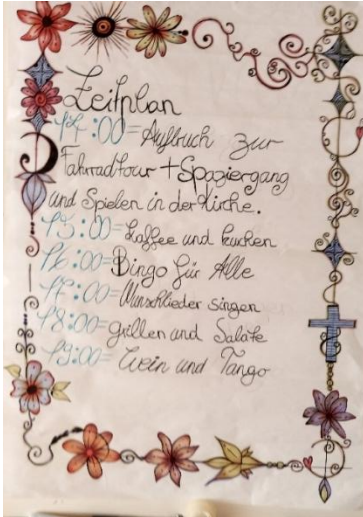 Zeitplan
14:00=Aufbruch zur
Fahrradtour + Spaziergang
und Spielen in der Kirche.
15:00=Kaffee und Kuchen
16:00=Bingo für Alle
17:00=Wunschlieder singen
18:00=grillen und Salate
19:00=Wein und Tango